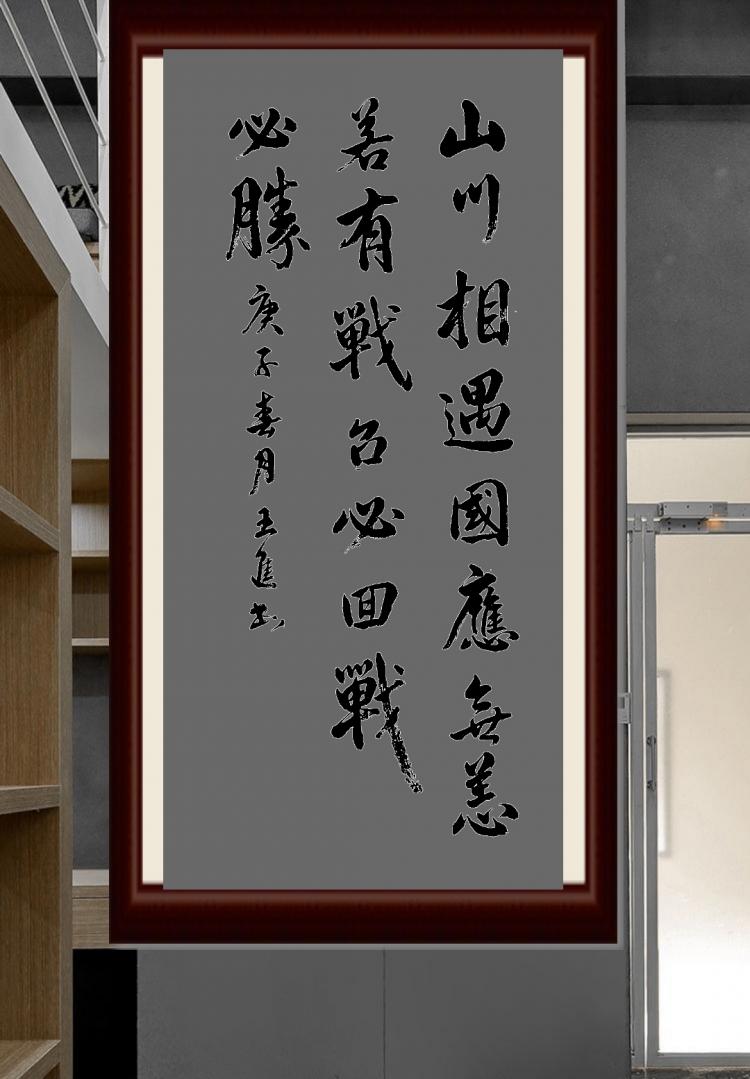 山川相遇國應無恙
若有戰召必回戰
必勝
庚子春月王進书